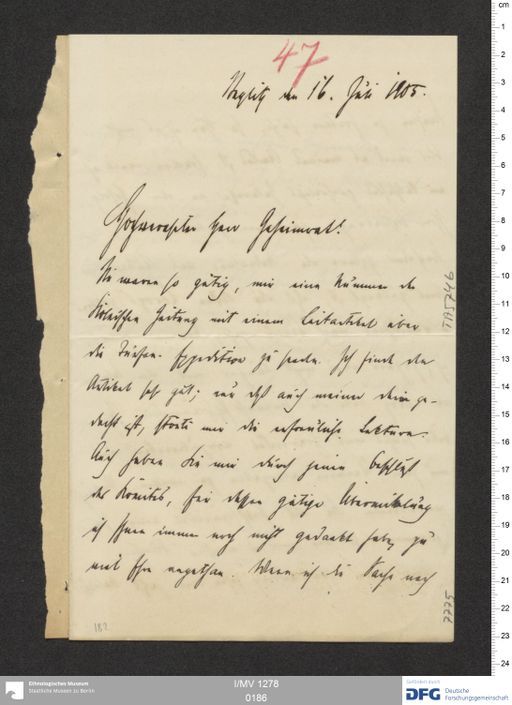 47
Steglitz den 16. Juli 1905.
Hochverehrter Herr Geheimrat!
Sie waren so gütig, mir eine Nummer der
Kölnischen Zeitung mit einem Leitartikel über
die Turfan-Expedition zu senden. Ich finde den
Artikel sehr gut; nur daß auch meiner darin ge-
dacht ist, störte mir die erfreuliche Lektüre.
Auch haben Sie mir durch jenen Beschluß
des Komites, für dessen gütige Übermittelung
ich Ihnen immer noch nicht gedankt habe, zu
viel Ehre angethan. Wenn ich die Sache nach
TA 5746
7775
182
Ethnologisches Museum
Staatliche Museen zu Berlin
I/MV 1278
0186
Gefördert durch
DFG Deutsche
Forschungsgemeinschaft
cm
1
2
3
4
5
6
7
8
9
10
11
12
13
14
15
16
17
18
19
20
21
22
23
24